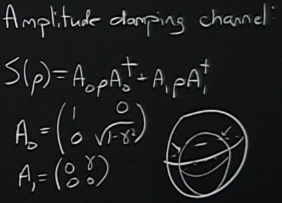 Amplitude damping channel:
S(ρ) = A₀ρA₀† + A₁ρA₁†
A₀ = (1 0
0 √1-γ²)
A₁ = (0 γ
0 0)